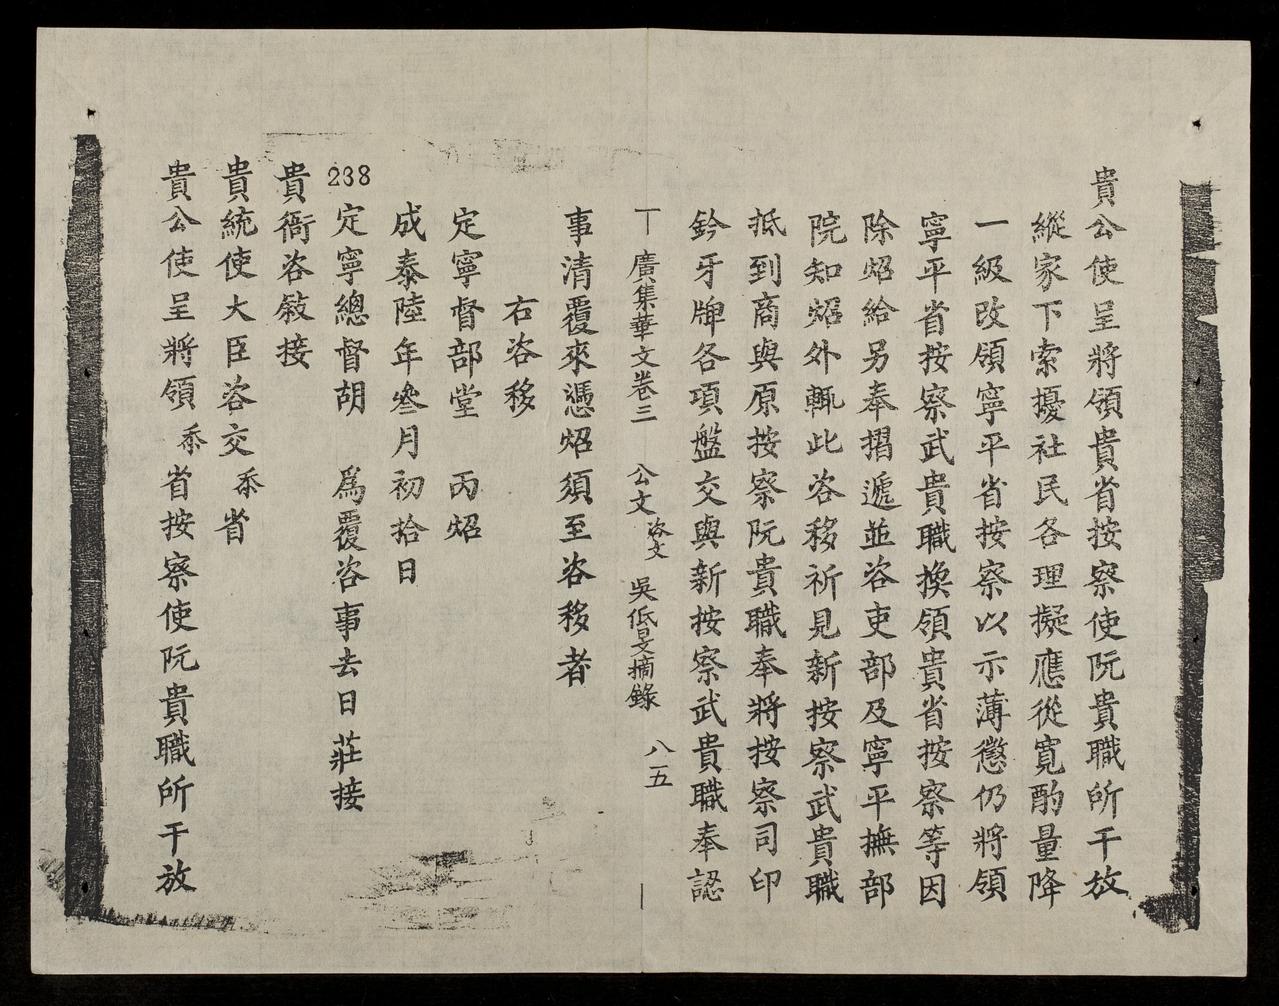 貴公使呈將領貴省按察使阮貴職所干放
縱家下索擾社民各理擬應從寬酌量降
一級改領寧平省按察以示薄懲仍將領
寧平省按察武貴職換領貴省按察等因
除炤給另奉摺遞並咨吏部及寧平撫部
院知炤外輒此咨移祈見新按察武貴職
抵到商與原按察阮貴職奉將按察司印
鈐牙牌各項盤交與新按察武貴職奉認
廣集華文卷三 公文 咨文 吳低旻摘錄 八五
事清覆來憑炤須至咨移者
右咨移
定寧督部堂 丙炤
成泰陸年叄月初拾日
238
定寧總督胡 為覆咨事去日莊接
貴衙咨敍接
貴統使大臣咨交忝省
貴公使呈將領忝省按察使阮貴職所干放